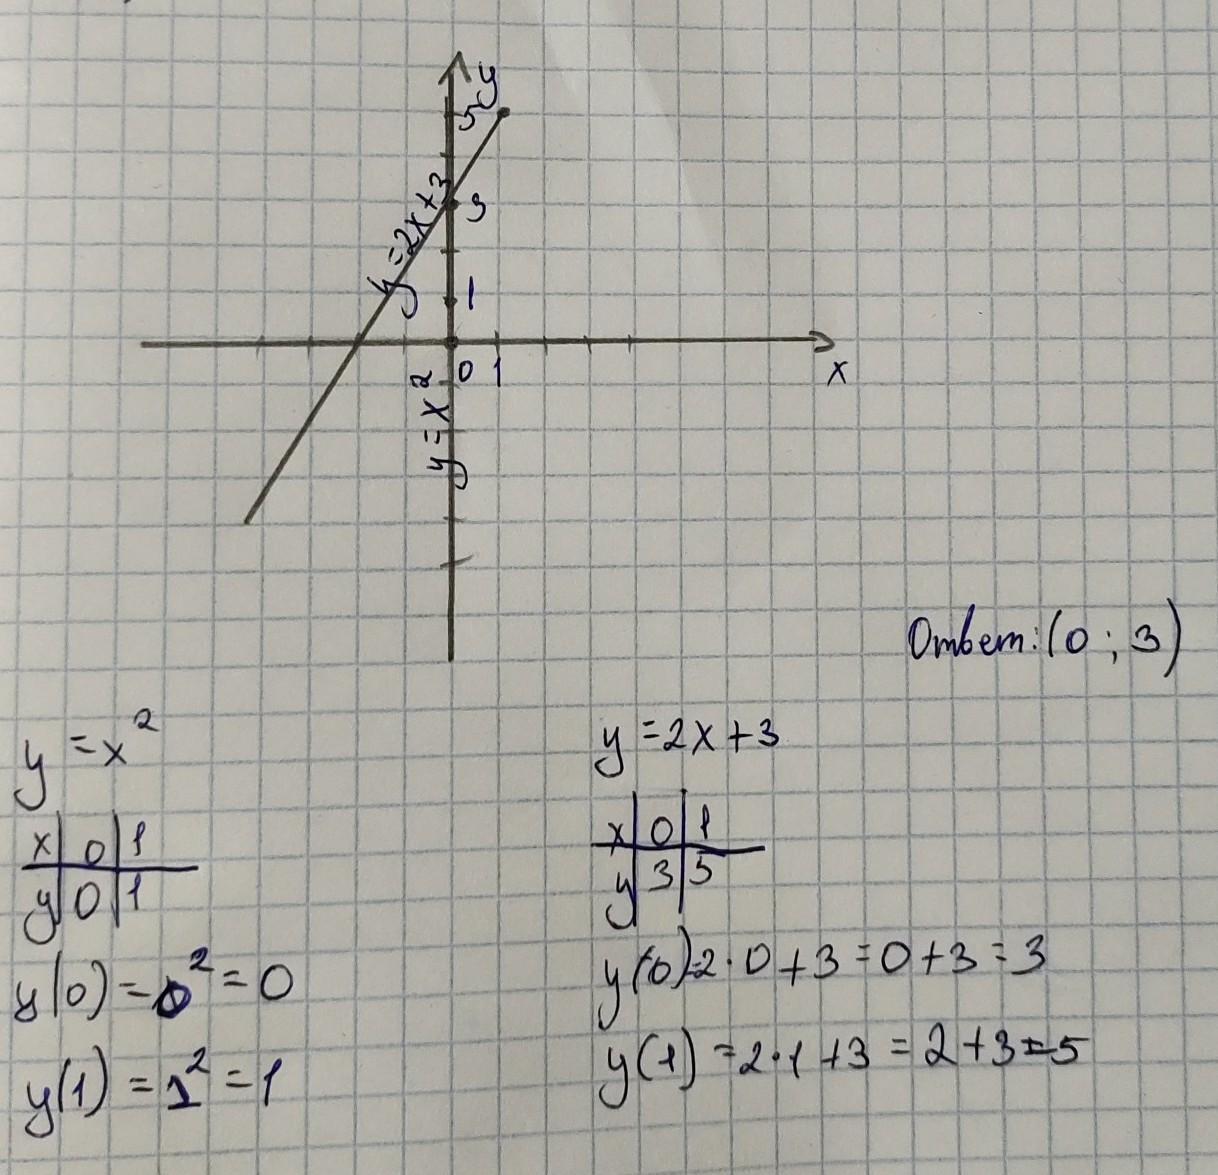 y
5
y = 2x + 3
3
1
0 1
x
y = x²
Ответ: (0 ; 3)
y = x²
x | 0 | 1
y | 0 | 1
y(0) = 0² = 0
y(1) = 1² = 1
y = 2x + 3
x | 0 | 1
y | 3 | 5
y(0) = 2 · 0 + 3 = 0 + 3 = 3
y(1) = 2 · 1 + 3 = 2 + 3 = 5